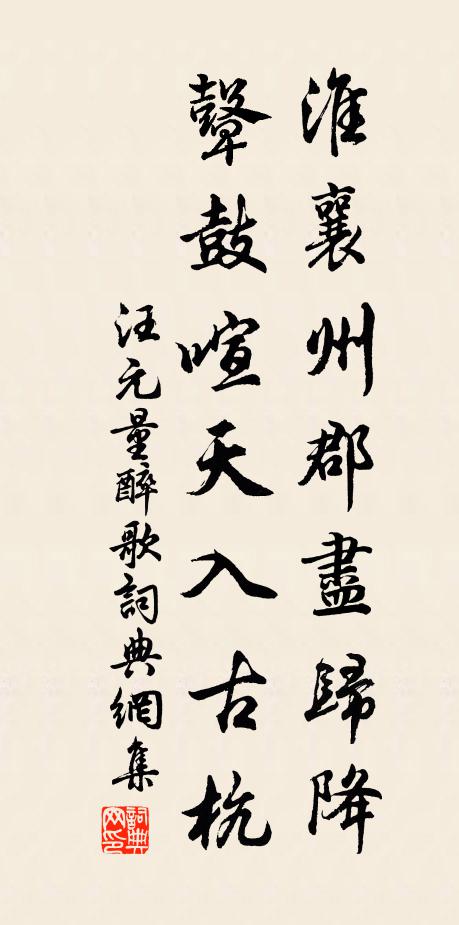 淮襄州郡盡歸降
鼙鼓喧天入古杭
汪元量醉歌詞典網集
詞典網印